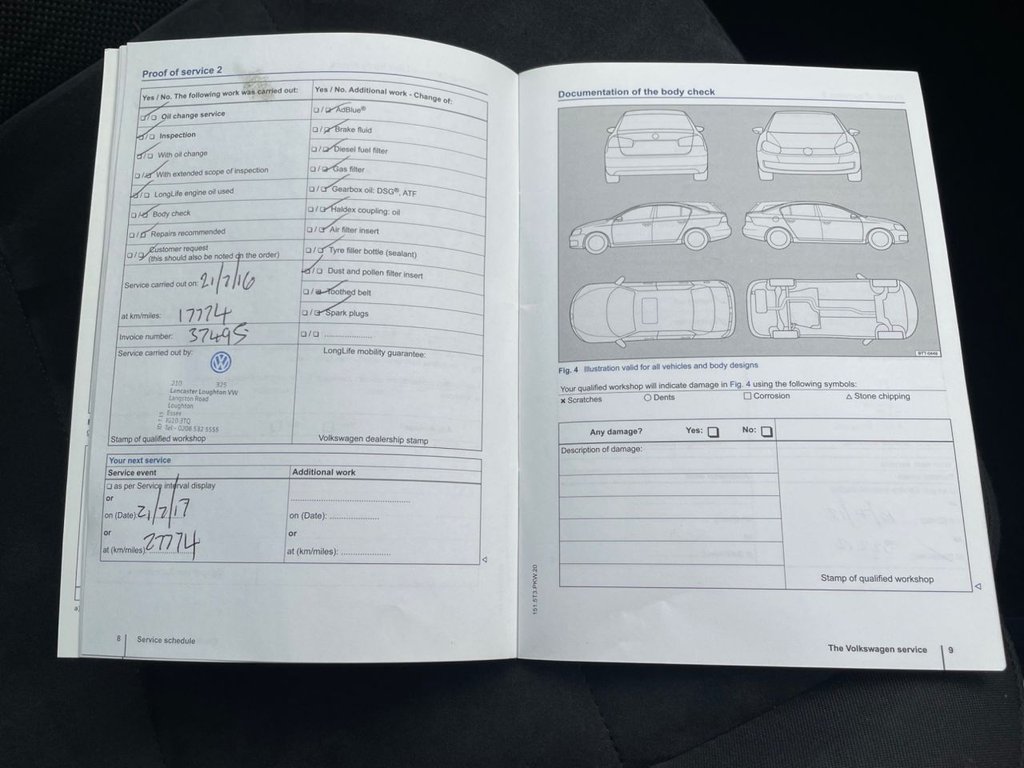 Proof of service 2
Yes / No. The following work was carried out:
Oil change service
Inspection
With oil change
With extended scope of inspection
LongLife engine oil used
Body check
Repairs recommended
Customer request
(this should also be noted on the order)
Service carried out on: 21/7/16
at km/miles: 17774
Invoice number: 37495
Service carried out by:
210 325
Lancaster Loughton VW
Langston Road
Loughton
Essex
IG10 3TQ
Tel - 0208 532 5555
Stamp of qualified workshop
Yes / No. Additional work - Change of:
AdBlue®
Brake fluid
Diesel fuel filter
Gas filter
Gearbox oil: DSG®, ATF
Haldex coupling: oil
Air filter insert
Tyre filler bottle (sealant)
Dust and pollen filter insert
Toothed belt
Spark plugs
LongLife mobility guarantee:
Volkswagen dealership stamp
Your next service
Service event
as per Service interval display
or
on (Date): 21/7/17
or
at (km/miles): 27774
Additional work
on (Date):
or
at (km/miles):
8 Service schedule
Documentation of the body check
Fig. 4 Illustration valid for all vehicles and body designs
Your qualified workshop will indicate damage in Fig. 4 using the following symbols:
Scratches Dents Corrosion Stone chipping
Any damage? Yes: No:
Description of damage:
Stamp of qualified workshop
151.5T3.PKW.20
The Volkswagen service 9